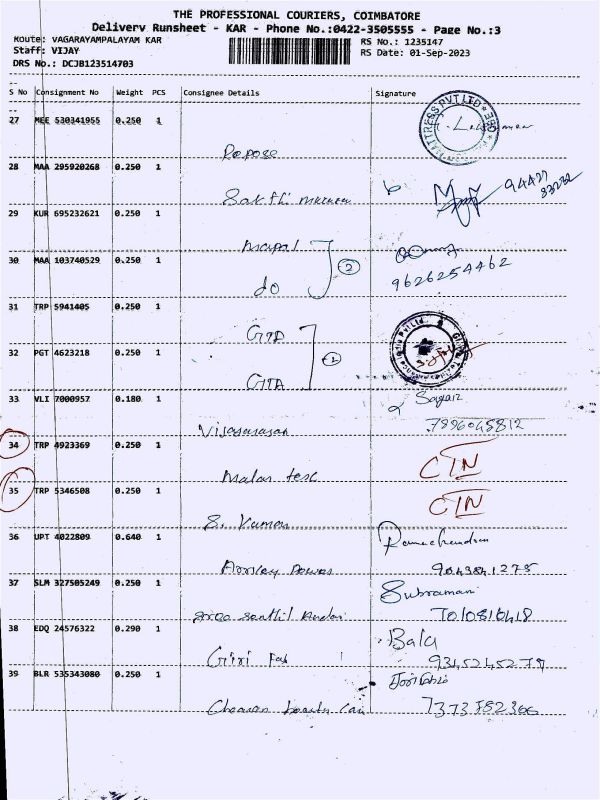 THE PROFESSIONAL COURIERS, COIMBATORE
Delivery Runsheet - KAR - Phone No.:0422-3505555 - Page No.:3
Route: VAGARAYAMPALAYAM KAR
RS No.: 1235147
Staff: VIJAY
RS Date: 01-Sep-2023
DRS No.: DCJB123514703
S No Consignment No Weight PCS Consignee Details Signature
27 MEE 530341955 0.250 1
Repose
28 MAA 295920268 0.250 1
Sakthi
94427
33232
29 KUR 695232621 0.250 1
Mapal
30 MAA 103740529 0.250 1
2
do
9626254462
31 TRP 5941405 0.250 1
GITA
32 PGT 4623218 0.250 1
GITA
33 VLI 7000957 0.180 1
Sagar
Vijayarajan
7896045812
34 TRP 4923369 0.250 1
Malar tesc
CTN
35 TRP 5346508 0.250 1
CTN
S. Kumar
36 UPT 4022809 0.640 1
Ramachandran
9043841275
37 SLM 327505249 0.250 1
Subramani
Sree Senthil
7010810418
38 EDQ 24576322 0.290 1
Bala
Giri Fab
9345245279
39 BLR 535343080 0.250 1
7373782366